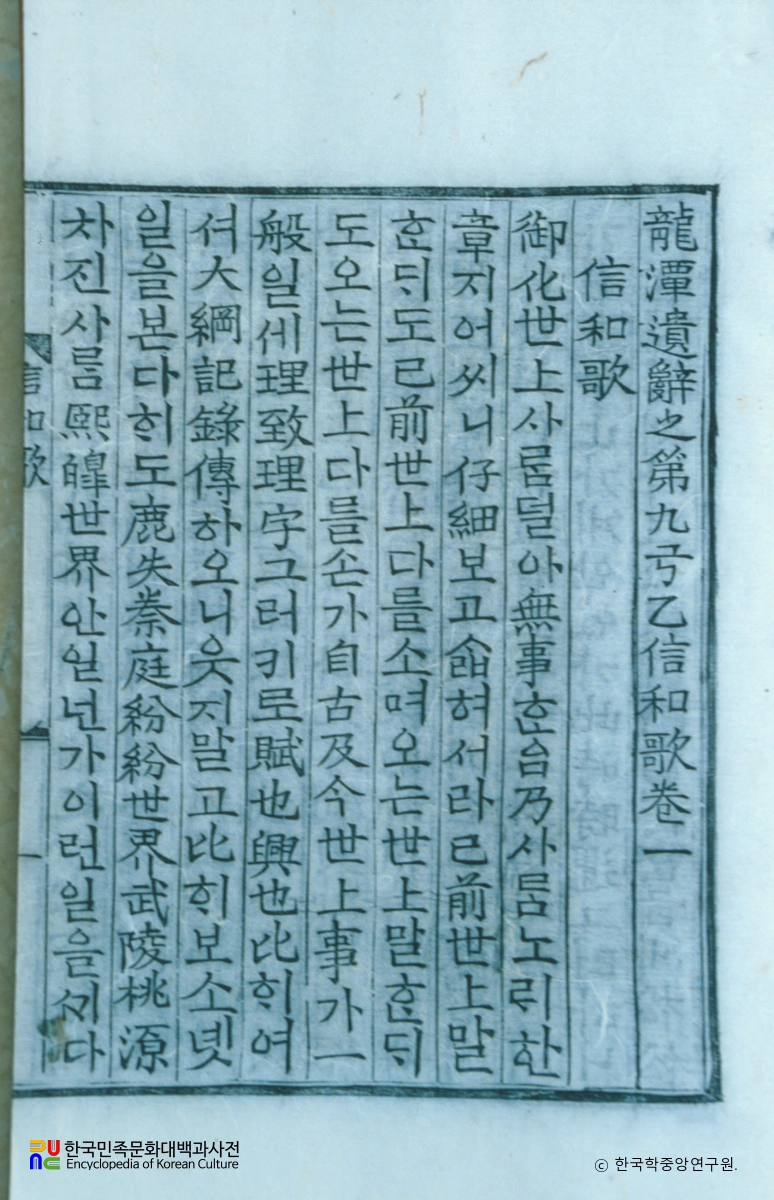 龍潭遺辭之第九弓乙信和歌卷一
信和歌
御化世上사ᄅᆞᆷ덜아無事ᄒᆞᆫ乃사ᄅᆞᆷ노ᄅᆡ한
章지어씨니仔細보고ᄉᆞᆲ혀서라已前世上말
ᄒᆞᆫᄃᆡ도已前世上다를소며오는世上말ᄒᆞᆫᄃᆡ
도오는世上다를손가自古及今世上事가一
般일세理致理字그러키로賦也興也比ᄒᆡ여
서大綱記錄傳하오니웃지말고比ᄒᆡ보소녯
일을본다ᄒᆡ도鹿失秦庭紛紛世界武陵桃源
차진사ᄅᆞᆷ熙皥世界안일넌가이런일을ᄉᆡ다
信和歌
한국민족문화대백과사전
Encyclopedia of Korean Culture
ⓒ 한국학중앙연구원.